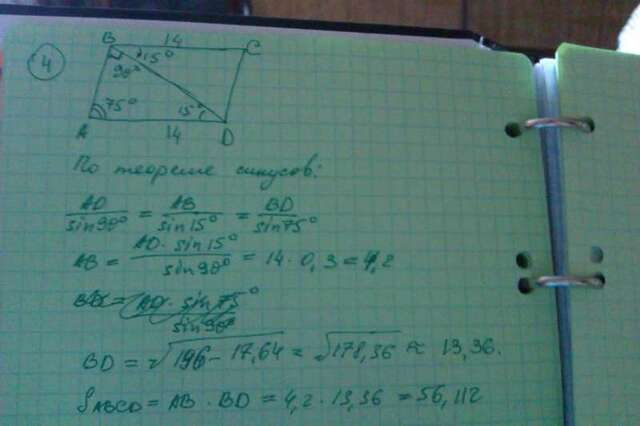 4
B 14 C
15°
90°
75° 15°
A 14 D
По теореме синусов:
AD/sin90° = AB/sin15° = BD/sin75°
AB = AD · sin15°/sin90° = 14 · 0,3 = 4,2
BD = AD · sin75°/sin90°
BD = √196 - 17,64 = √178,36 ≈ 13,36.
SABCD = AB · BD = 4,2 · 13,36 = 56,112